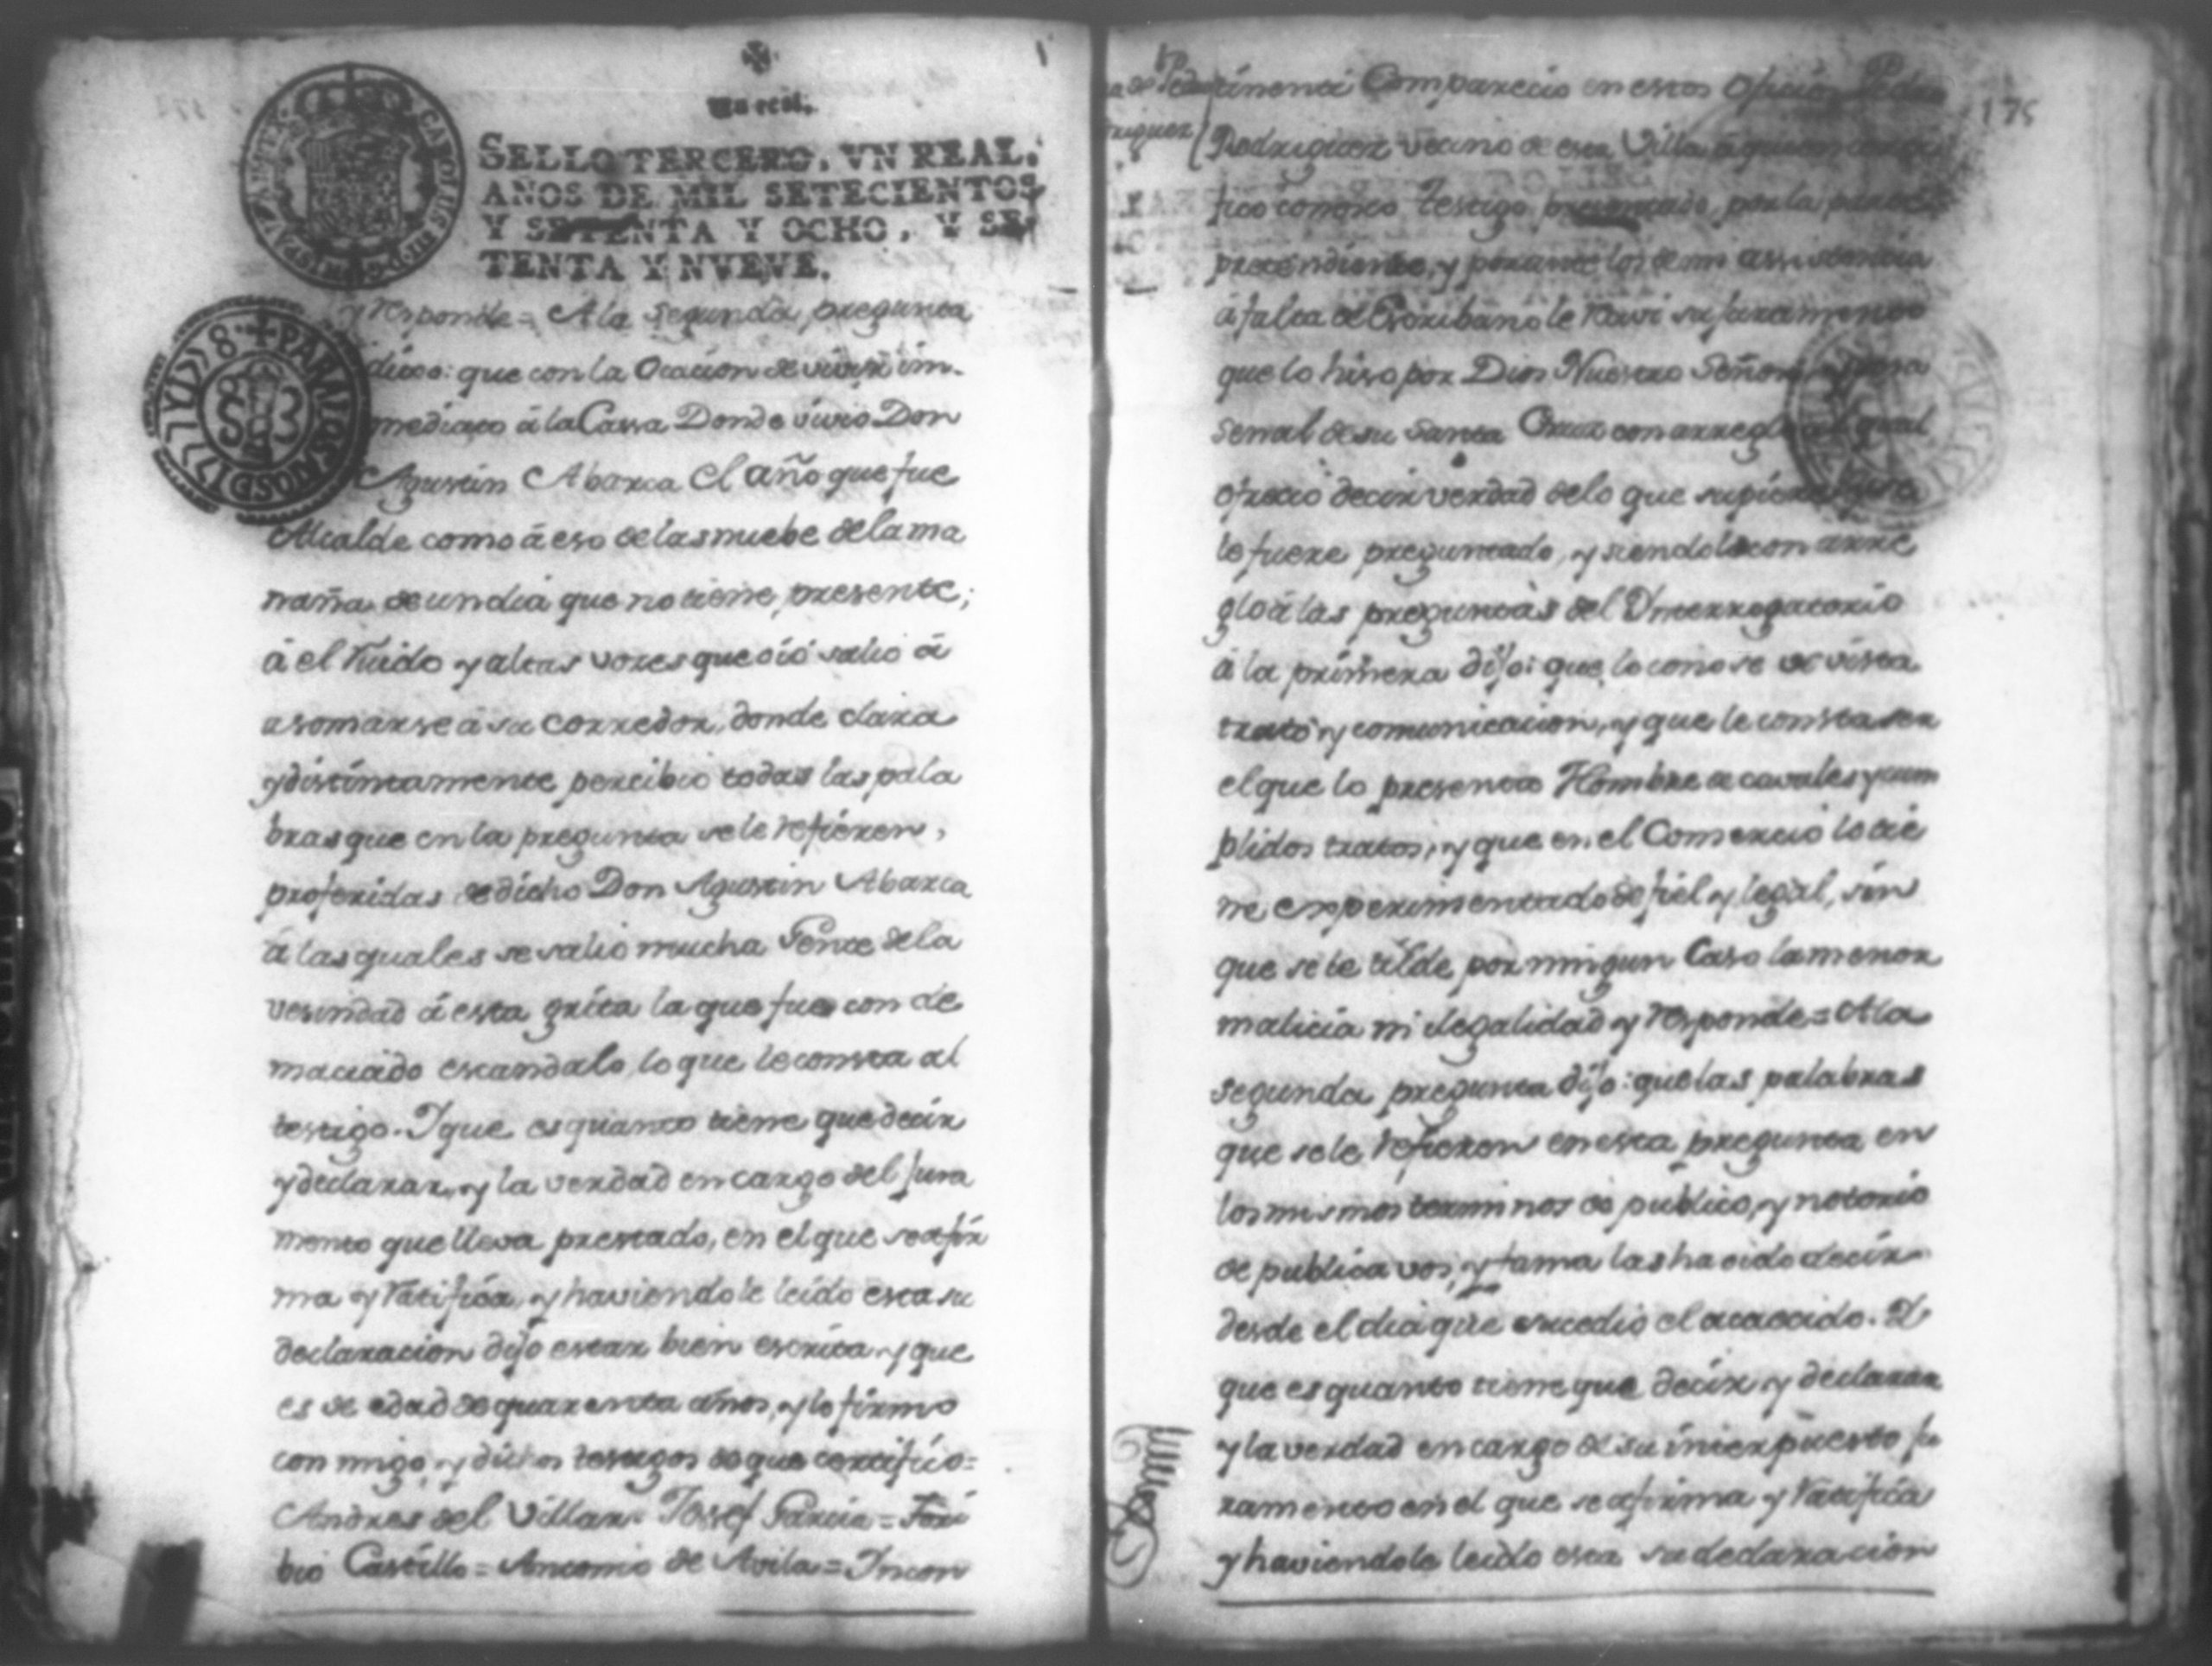 Un real.
SELLO TERCERO, VN REAL,
AÑOS DE MIL SETECIENTOS
Y SETENTA Y OCHO, Y SE-
TENTA Y NVEVE.
y responde = A la segunda pregunta
dixo: que con la Ocacion de vivir im-
mediato â la Cassa Donde vivio Don
Agustin Abarca El año que fue
Alcalde como â eso de las nuebe de la ma
ñana de un dia que no tiene presente;
â el ruido y altas voces que oió salio â
asomarse â su corredor, donde clara
y distintamente percibio todas las pala
bras que en la pregunta se le refieren,
proferidas de dicho Don Agustin Abarca
â las quales se salio mucha Gente de la
vesindad â esta grita la que fue con de
maciado escandalo, lo que le consta al
testigo. Y que es quanto tiene que decir
y declarar, y la verdad en cargo del jura
mento que lleva prestado, en el que se afir
ma y ratifica, y haviendole leido esta su
declaracion dijo estar bien escrita y que
es de edad de quarenta años, y lo firmo
con migo, y dichos testigos de que certifico =
Andres del Villar = Josef Garcia = Tori
bio Castillo = Antonio de Avila = Incon
175
tinenti Comparecio en estos Oficios Pedro
Rodriguez vecino de esta Villa â quien
fico conosco testigo presentado por la parte
pretendiente, y por ante los de mi assistencia
â falta de Escribano le recivi su juramento
que lo hiso por Dios Nuestro Señor,
señal de su Santa Cruz con arreglo al qual
ofrecio decir verdad de lo que supiere
le fuere preguntado, y siendolo con arre
glo â las preguntas del Ynterrogatorio
â la primera dijo: que lo conose de vista
trato y comunicacion, y que le consta ser
el que lo presenta Hombre de cavales y cum
plidos tratos, y que en el Comercio lo tie
ne experimentado de fiel y legal, sin
que se le tilde por ningun Caso la menor
malicia ni ilegalidad y responde = A la
segunda pregunta dijo: que las palabras
que se le refieren en esta pregunta en
los mismos terminos de publico, y notorio
de publica vos, y fama las ha oido decir
desde el dia que sucedio el acaecido. Y
que es quanto tiene que decir y declarar
y la verdad en cargo de su interpuesto ju
ramento en el que se afirma y ratifica
y haviendole leido esta su declaracion